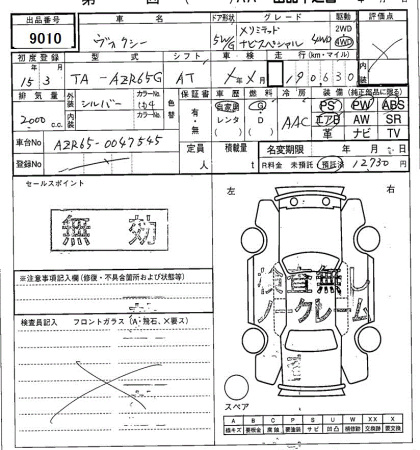 出品番号 車名 ドア形状 グレード 駆動 評価点
9010 ヴォクシー 5W/G Xリミテッド ナビスペシャル 4WD 2WD 4WD
初度登録 型式 シフト 車検 走行(km・マイル) 内装
年 月 年 月
15 3 TA-AZR65G AT X X 190,630
排気量 外装 シルバー カラーNo. 色替 保証書 車歴 燃料 冷房 装備(純正部品に限る)
2000 c.c. 内装 カラーNo. 有・無 自家用 G AAC PS PW ABS
レンタ D エアB AW SR
革 ナビ TV
車台No AZR65-0047545 定員 積載量 名変期限 年 月 日
登録No 人 t R料金 未預託 預託済 12730 円
セールスポイント 左 右
無効
※注意事項記入欄(修復・不具合箇所および状態等)
検査無し
ノークレーム
検査員記入 フロントガラス(A・飛石、X要ス)
スペア
A B C P S U W X XX
線キズ 要板金 腐蝕 要塗装 サビ 凹凸 補修跡 交換跡 要交換